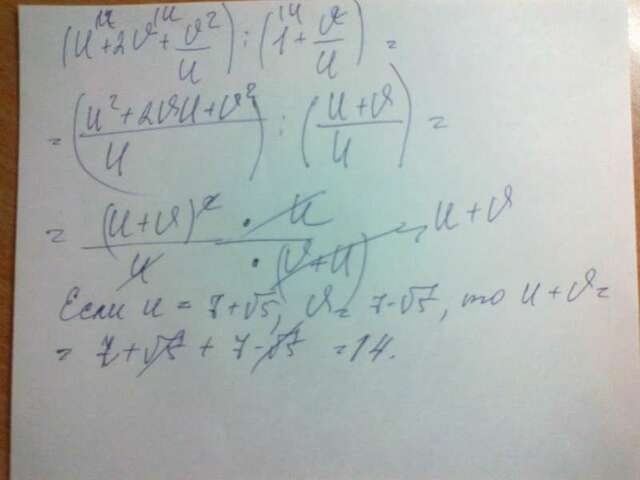 (u^{/u}+2v^{/u}+v²/u) : (1^{/u}+v/u) =
= ((u²+2vu+v²)/u) : ((u+v)/u) =
= ((u+v)² · u)/(u · (v+u)) = u+v
Если u = 7+√5, v = 7-√5, то u+v=
= 7+√5 + 7-√5 = 14.